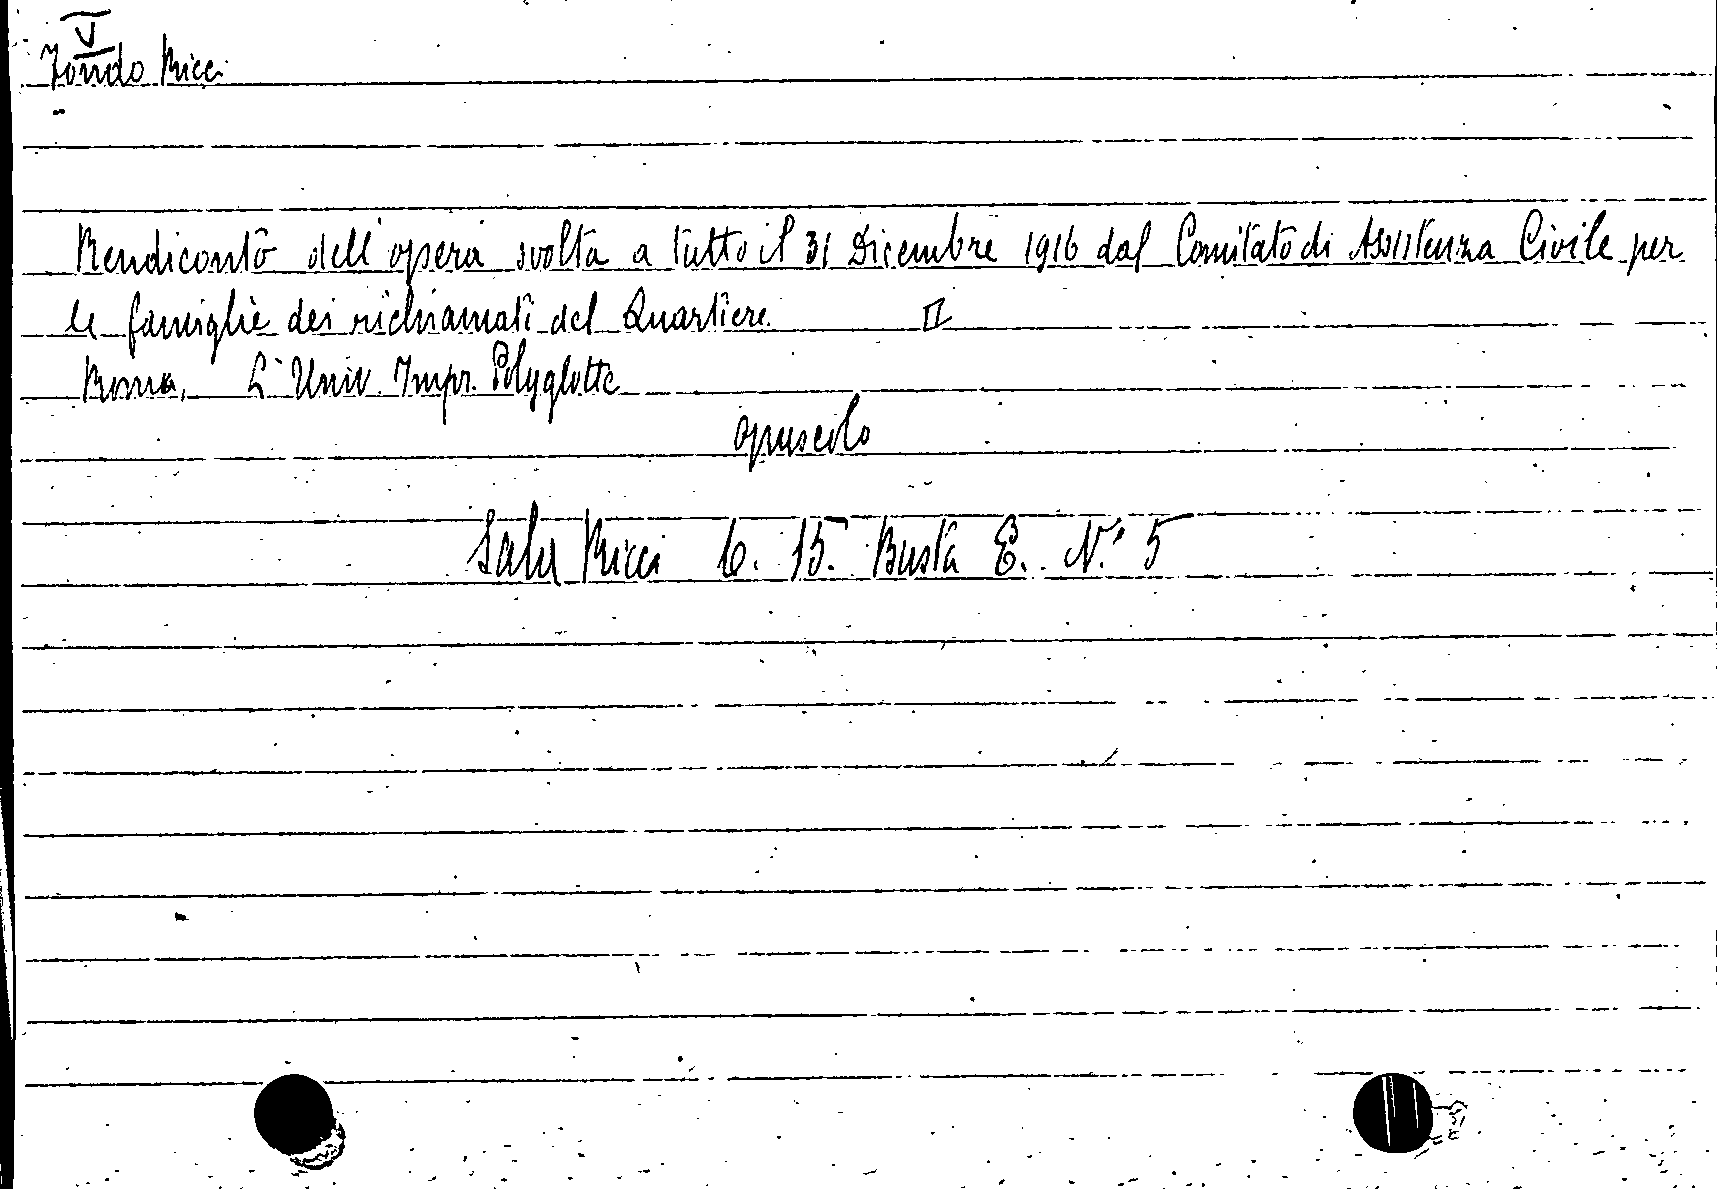 V
Fondo Ricci
Rendiconto dell'opera svolta a tutto il 31 Dicembre 1916 dal Comitato di Assistenza Civile per
le famiglie dei richiamati del Quartiere II
Roma, L'Univ. Impr. Polyglotte
opuscolo
Sala Ricci 6. 15. Busta E. N.° 5